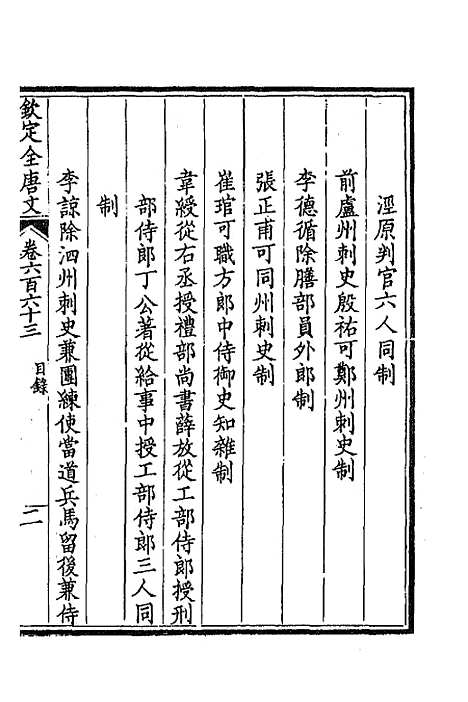 涇原判官六人同制
前盧州刺史殷祐可鄭州刺史制
李德循除膳部員外郎制
張正甫可同州刺史制
崔琯可職方郎中侍御史知雜制
韋綬從右丞授禮部尚書薛放從工部侍郎授刑
部侍郎丁公著從給事中授工部侍郎三人同
制
李諒除泗州刺史兼團練使當道兵馬留後兼侍
欽定全唐文
卷六百六十三
目錄
二